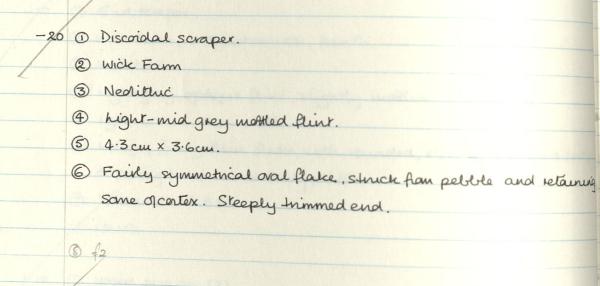 -20 ① Discoidal scraper.
② Wick Farm
③ Neolithic
④ Light-mid grey mottled flint.
⑤ 4.3cm × 3.6cm.
⑥ Fairly symmetrical oval flake, struck from pebble and retaining
some of cortex. Steeply trimmed end.
⑧ f2